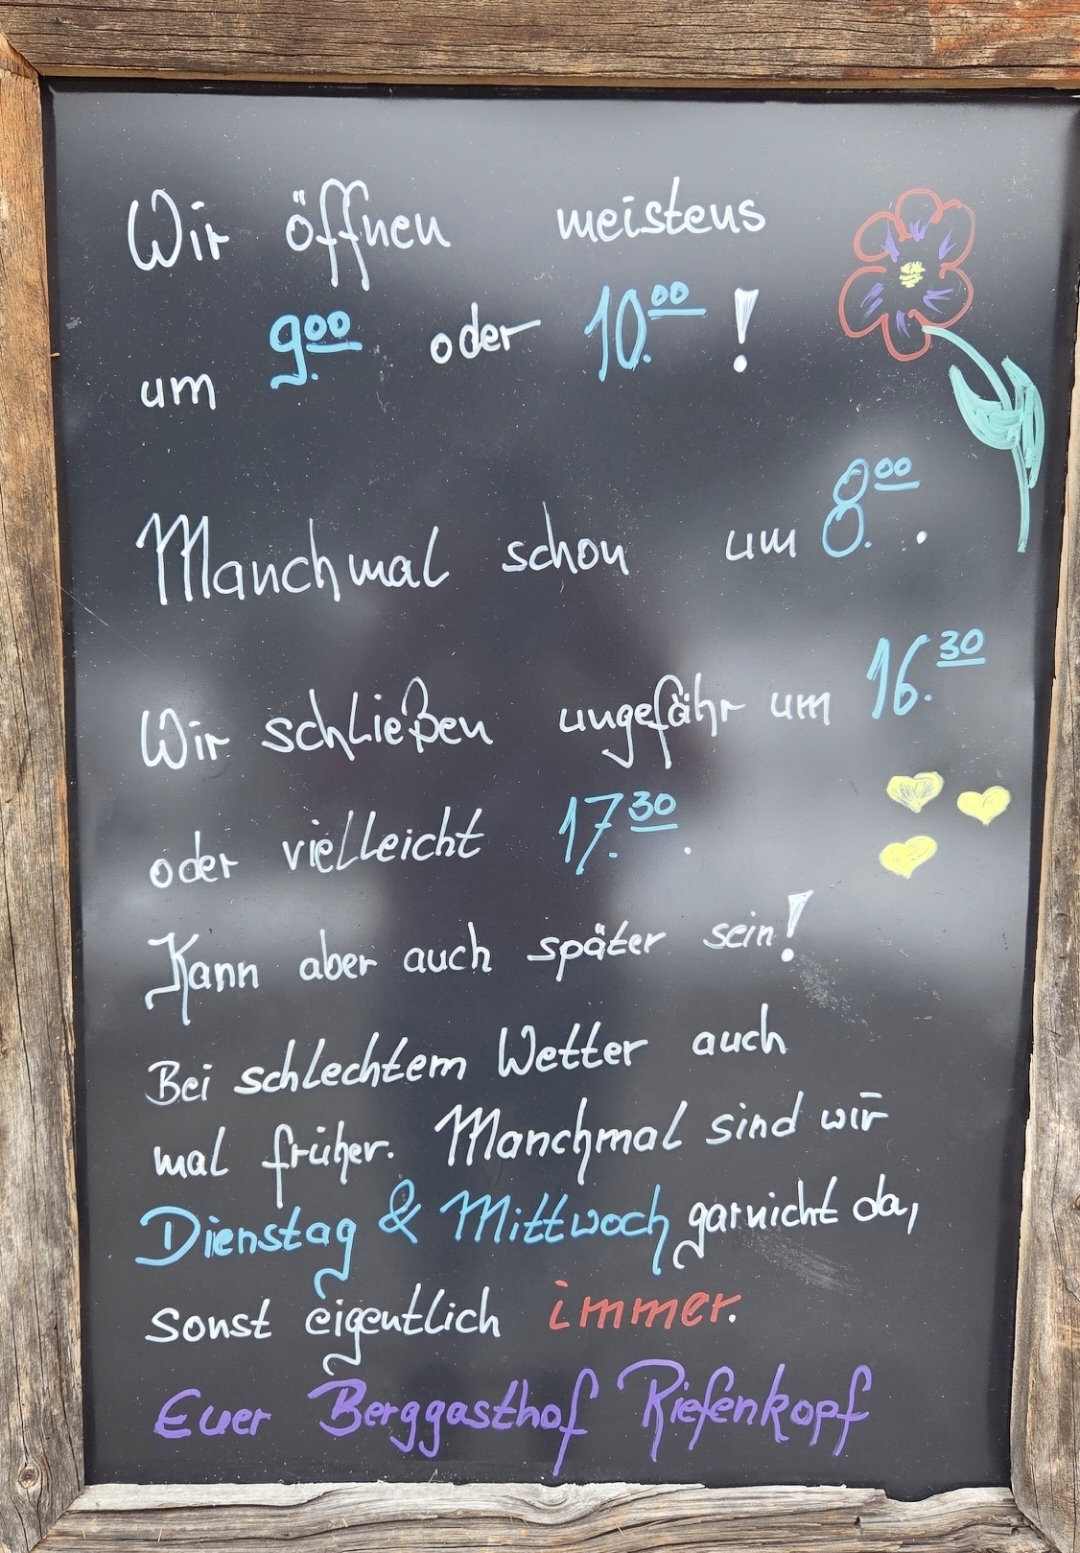 Wir öffnen meistens
um 9.00 oder 10.00 !
Manchmal schon um 8.00.
Wir schließen ungefähr um 16.30
oder vielleicht 17.30.
Kann aber auch später sein!
Bei schlechtem Wetter auch
mal früher. Manchmal sind wir
Dienstag & Mittwoch garnicht da,
sonst eigentlich immer.
Euer Berggasthof Riefenkopf